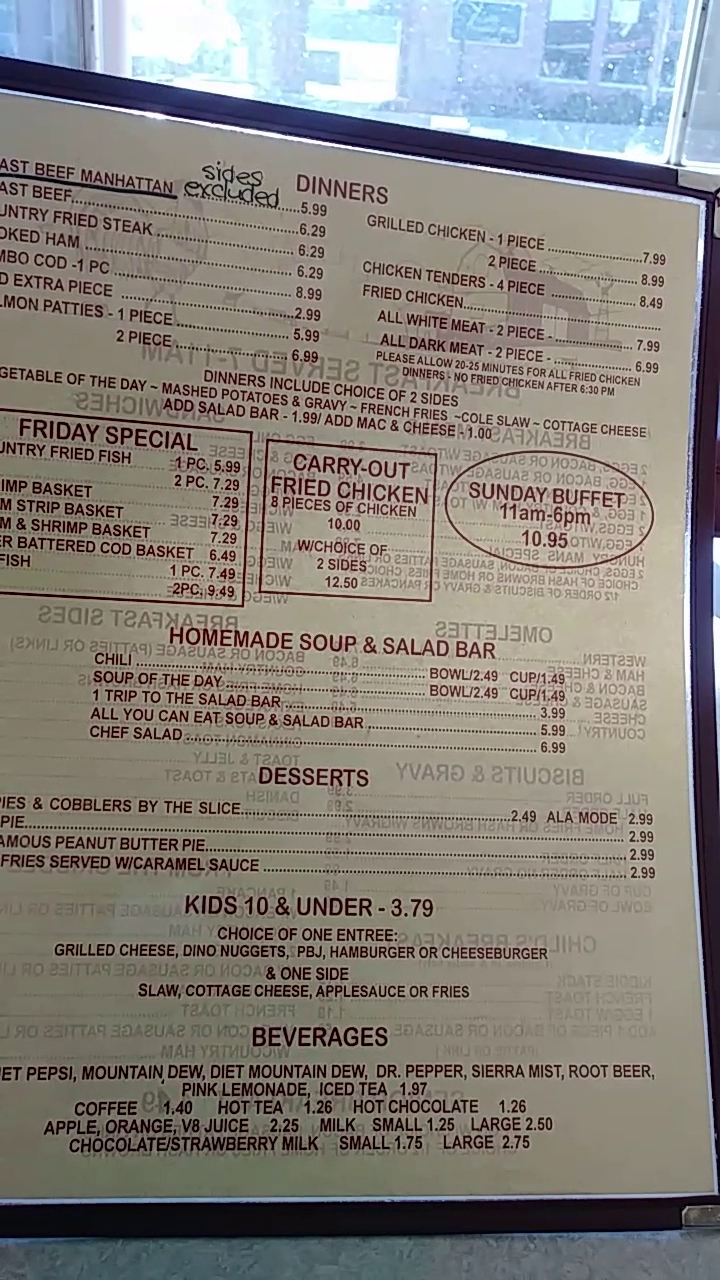 sides
excluded
DINNERS
AST BEEF MANHATTAN ..... 5.99
AST BEEF..... 6.29
UNTRY FRIED STEAK ..... 6.29
OKED HAM ..... 6.29
MBO COD -1 PC ..... 8.99
D EXTRA PIECE ..... 2.99
LMON PATTIES - 1 PIECE ..... 5.99
2 PIECE ..... 6.99
GRILLED CHICKEN - 1 PIECE ..... 7.99
2 PIECE ..... 8.99
CHICKEN TENDERS - 4 PIECE ..... 8.49
FRIED CHICKEN.....
ALL WHITE MEAT - 2 PIECE - ..... 7.99
ALL DARK MEAT - 2 PIECE - ..... 6.99
PLEASE ALLOW 20-25 MINUTES FOR ALL FRIED CHICKEN
DINNERS - NO FRIED CHICKEN AFTER 6:30 PM
DINNERS INCLUDE CHOICE OF 2 SIDES
GETABLE OF THE DAY ~ MASHED POTATOES & GRAVY ~ FRENCH FRIES ~COLE SLAW ~ COTTAGE CHEESE
ADD SALAD BAR - 1.99/ ADD MAC & CHEESE - 1.00
FRIDAY SPECIAL
UNTRY FRIED FISH 1 PC. 5.99
2 PC. 7.29
IMP BASKET 7.29
M STRIP BASKET 7.29
M & SHRIMP BASKET 7.29
ER BATTERED COD BASKET 6.49
FISH 1 PC. 7.49
2PC. 9.49
CARRY-OUT
FRIED CHICKEN
8 PIECES OF CHICKEN
10.00
W/CHOICE OF
2 SIDES
12.50
SUNDAY BUFFET
11am-6pm
10.95
HOMEMADE SOUP & SALAD BAR
CHILI ..... BOWL/2.49 CUP/1.49
SOUP OF THE DAY ..... BOWL/2.49 CUP/1.49
1 TRIP TO THE SALAD BAR ..... 3.99
ALL YOU CAN EAT SOUP & SALAD BAR ..... 5.99
CHEF SALAD ..... 6.99
DESSERTS
IES & COBBLERS BY THE SLICE..... 2.49 ALA MODE 2.99
PIE..... 2.99
AMOUS PEANUT BUTTER PIE..... 2.99
FRIES SERVED W/CARAMEL SAUCE ..... 2.99
KIDS 10 & UNDER - 3.79
CHOICE OF ONE ENTREE:
GRILLED CHEESE, DINO NUGGETS, PBJ, HAMBURGER OR CHEESEBURGER
& ONE SIDE
SLAW, COTTAGE CHEESE, APPLESAUCE OR FRIES
BEVERAGES
ET PEPSI, MOUNTAIN DEW, DIET MOUNTAIN DEW, DR. PEPPER, SIERRA MIST, ROOT BEER,
PINK LEMONADE, ICED TEA 1.97
COFFEE 1.40 HOT TEA 1.26 HOT CHOCOLATE 1.26
APPLE, ORANGE, V8 JUICE 2.25 MILK SMALL 1.25 LARGE 2.50
CHOCOLATE/STRAWBERRY MILK SMALL 1.75 LARGE 2.75